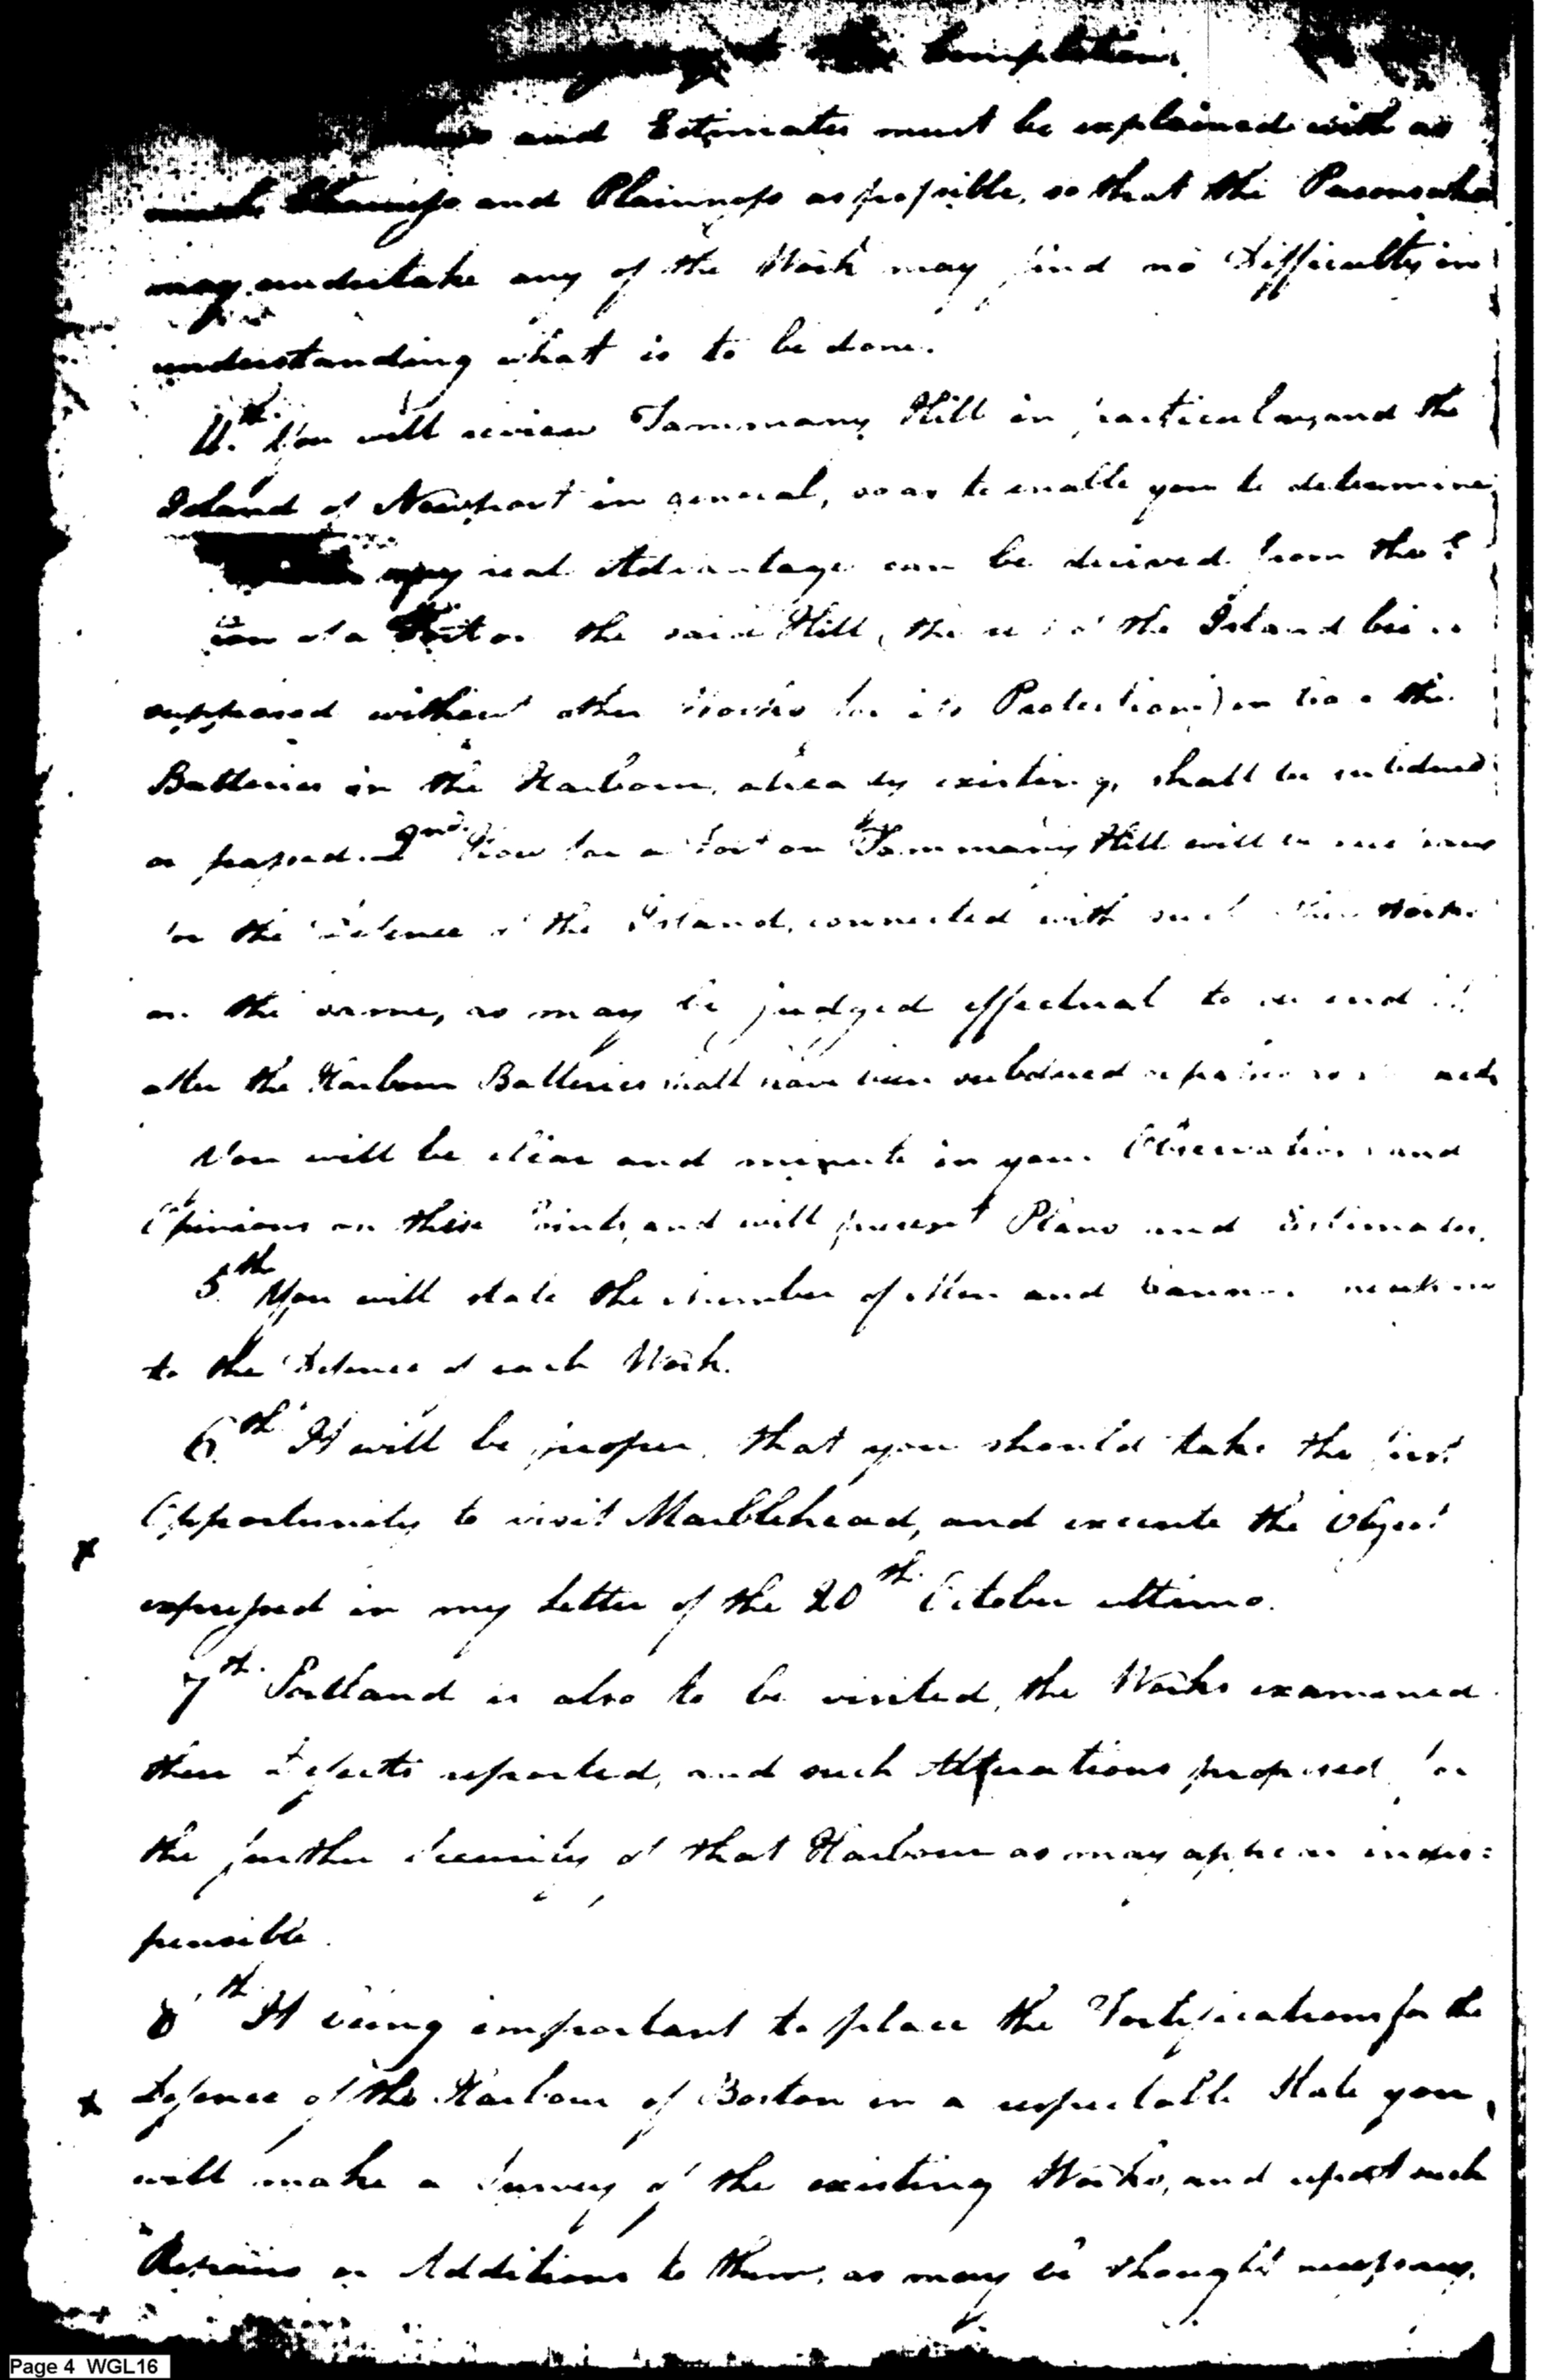 Completion.
and Estimates must be explained with as
much and Plainness as possible, so that the Persons who
may undertake any of the Work may find no Difficulty in
understanding what is to be done.
4.th You will review Tammany Hill in particular, and the
Island of Newport in general, so as to enable you to determine
any real Advantage can be derived from the
of a Fort on the said Hill, the rest of the Island being
supposed without other Works for its Protection) in case the
Batteries in the Harbour, already existing, shall be subdued
or passed. 2nd. How far a Fort on Tammany Hill will
for the Defence of the Island, connected with such other Works
on the same, as may be judged effectual to defend it
after the Harbour Batteries shall have been subdued or passed
You will be clear and minute in your Observations and
Opinions on these Points, and will present Plans and Estimates.
5.th You will state the number of Men and Cannon
to the Defence of each Work.
6.th It will be proper, that you should take the first
Opportunity to visit Marblehead, and execute the Object
expressed in my Letter of the 20th. October ultimo.
7th. Portland is also to be visited, the Works examined
their Defects reported, and such Alterations proposed for
the further Security of that Harbour as may appear indis=
pensible.
8th It being important to place the Fortifications for the
Defence of the Harbour of Boston in a respectable State you
will make a Survey of the existing Works, and report such
Repairs or Additions to them, as may be thought necessary.
Page 4 WGL16